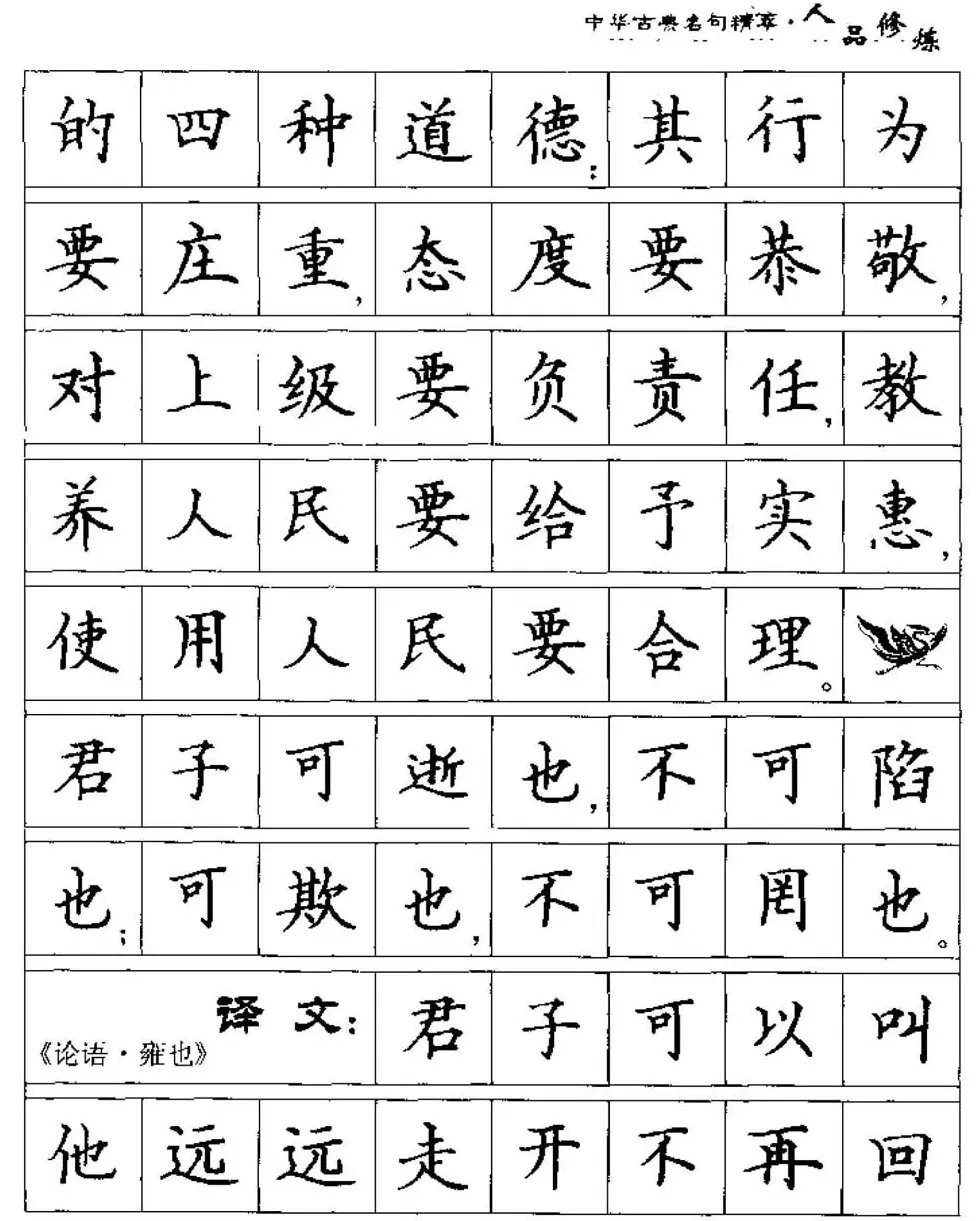 中华古典名句精萃·人品修炼
的四种道德：其行为
要庄重，态度要恭敬，
对上级要负责任，教
养人民要给予实惠，
使用人民要合理。
君子可逝也，不可陷
也；可欺也，不可罔也。
《论语·雍也》译文：君子可以叫
他远远走开不再回